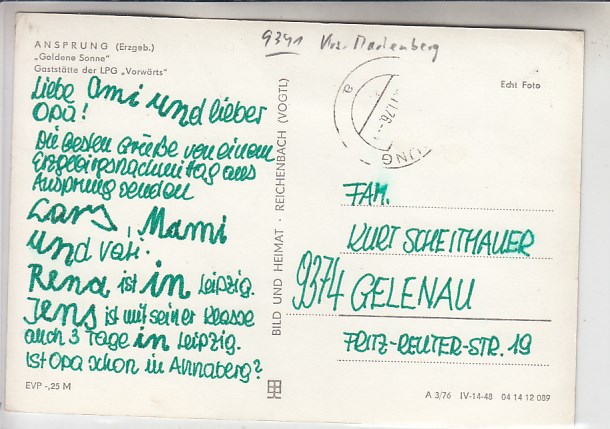 9341 Krs. Marienberg
ANSPRUNG (Erzgeb.)
„Goldene Sonne"
Gaststätte der LPG „Vorwärts"
Echt Foto
Liebe Omi und lieber
Opa!
Die besten Grüße von einem
Erzgebirgsnachmittag aus
Ansprung senden
Lars, Mami
und Vati.
Rena ist in Leipzig.
Jens ist mit seiner Klasse
auch 3 Tage in Leipzig.
Ist Opa schon in Annaberg?
EVP -,25 M
BILD UND HEIMAT · REICHENBACH (VOGTL)
a
76
UNG
FAM.
KURT SCHEITHAUER
9374 GELENAU
FRITZ-REUTER-STR. 19
A 3/76 IV-14-48 04 14 12 089